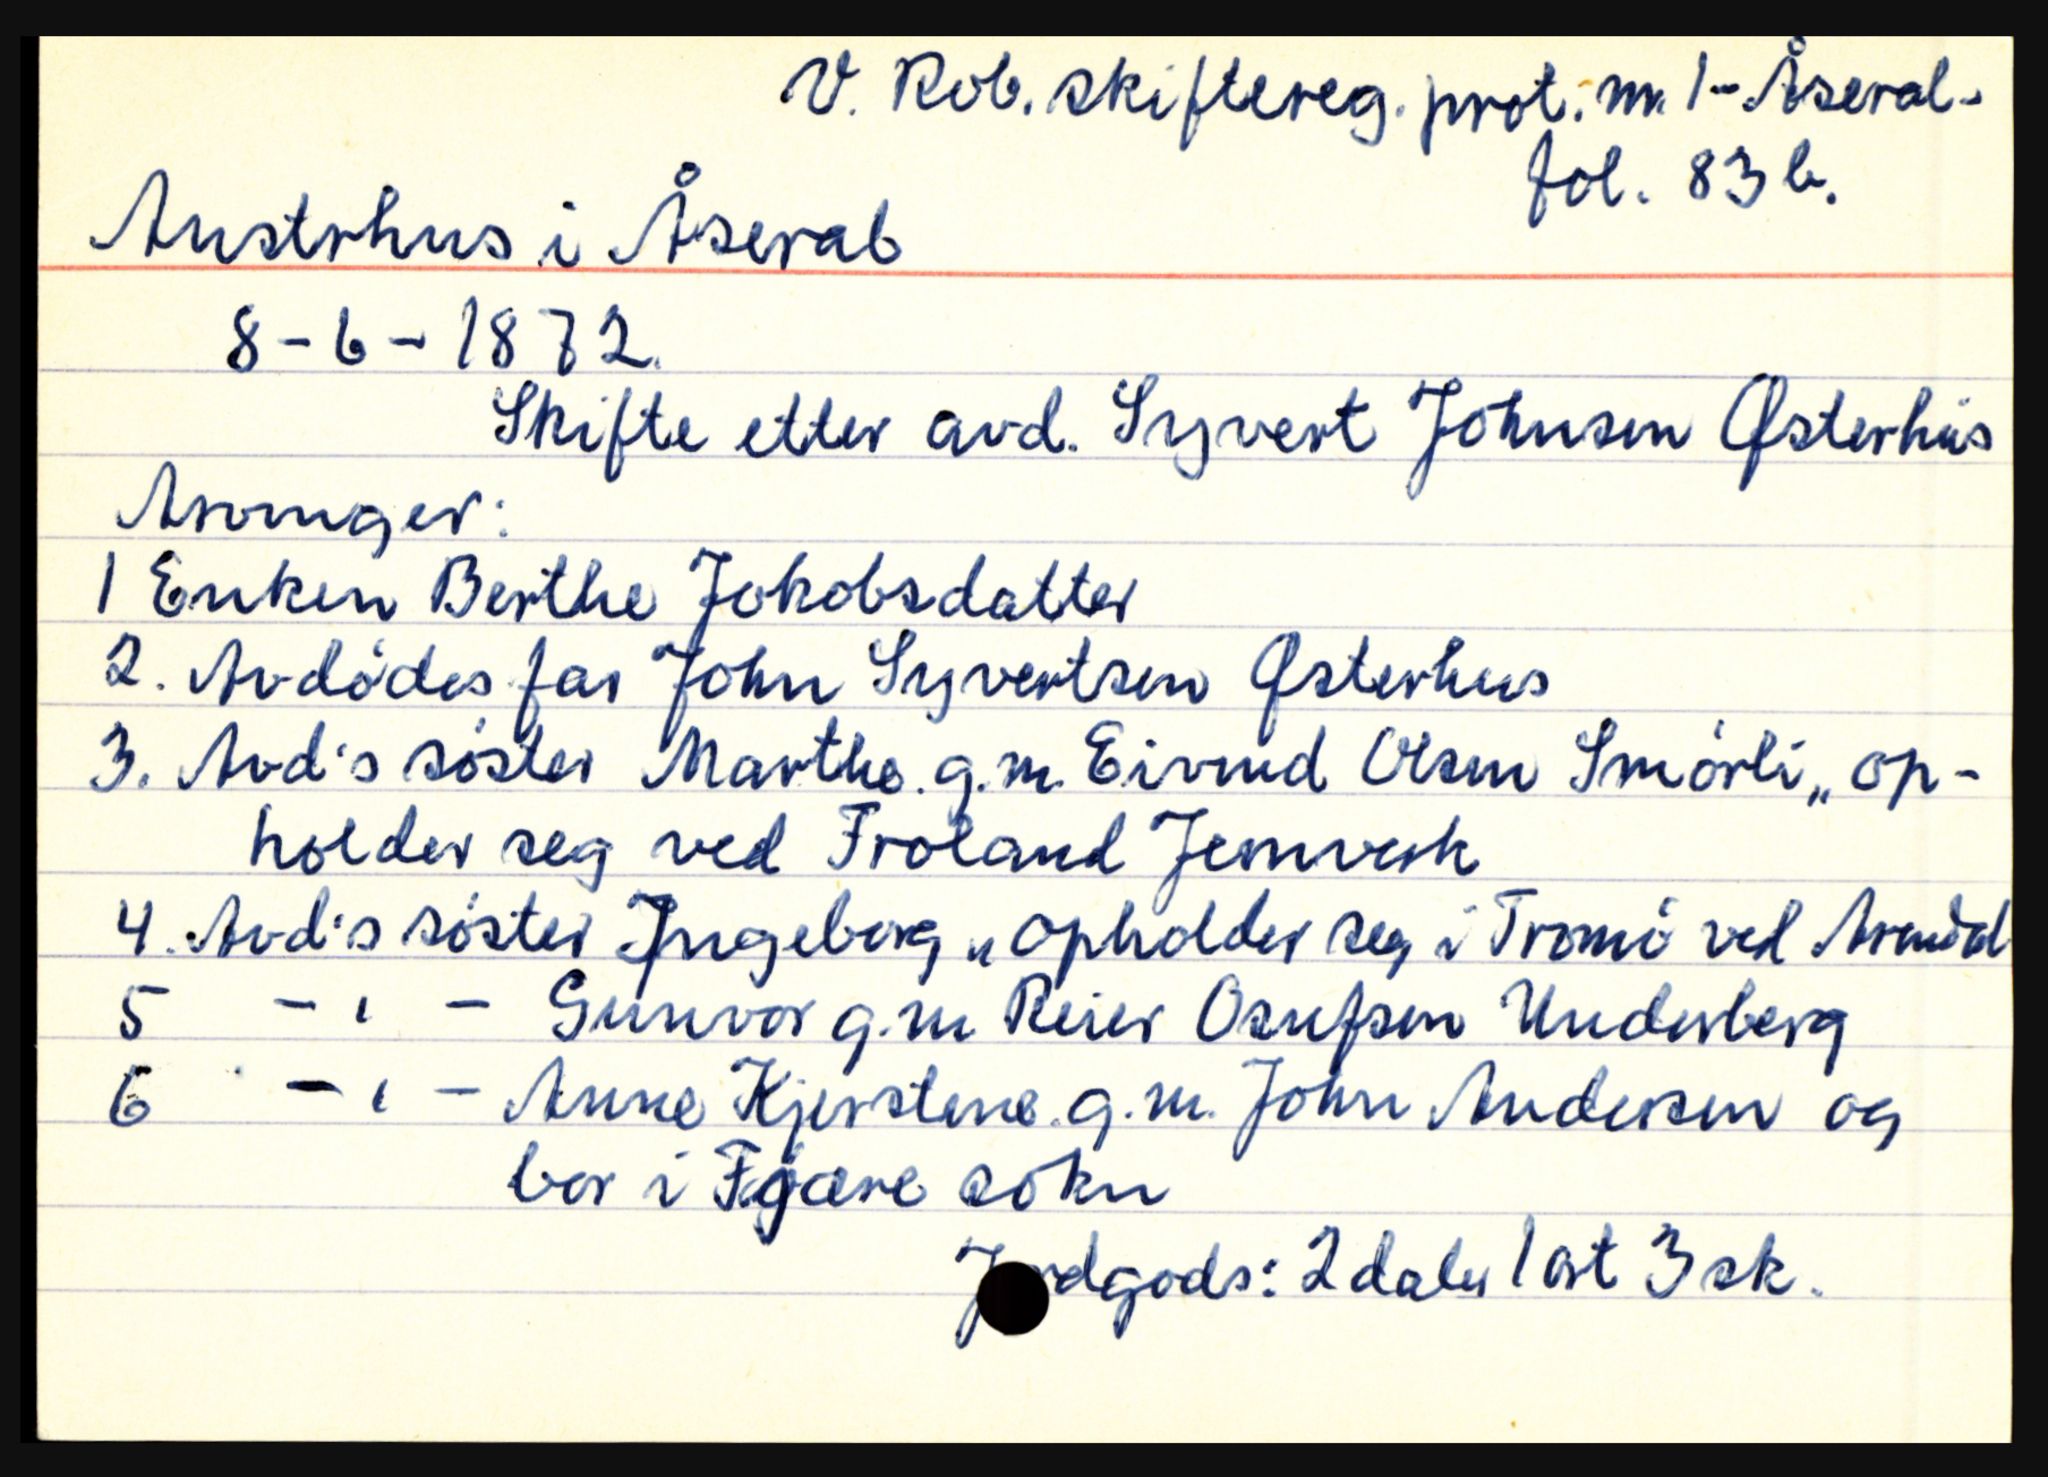 V. Rob. skiftereg. prot. nr. 1 - Åseral -
fol. 83 b.
Austrhus i Åseral
8 - 6 - 1872.
Skifte etter avd. Syvert Johnsen Østerhus
Arvinger:
1 Enken Berthe Jokobsdatter
2. Avdødes far John Syvertsen Østerhus
3. Avd's søster Marthe g.m. Eivind Olsen Smørli „ op-
holder seg ved Froland Jernverk
4. Avd's søster Ingeborg „ opholder seg i Tromø ved Arendal
5 - „ - Gunvor g.m. Reier Osufsen Underberg
6 - „ - Anne Kjerstene g.m. John Andersen og
bor i Fjære sokn
Jordgods: 2 daler 1 ort 3 sk.